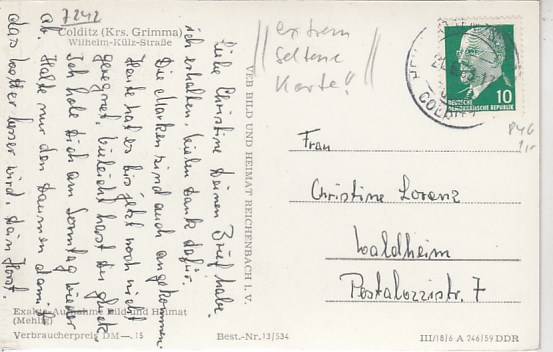 7242
Colditz (Krs. Grimma)
Wilhelm-Külz-Straße
Liebe Christine Deinen Brief habe
ich erhalten. Vielen Dank dafür.
Die Marken sind auch angekommen.
Heute hat es bis jetzt noch nicht
geregnet. Vielleicht hast du glück.
Ich hole Dich am Sonntag wieder
ab. Halte nur den Daumen damit
das Wetter besser wird. Dein Horst.
Exakte-Aufnahme Bild und Heimat
(Mehlig)
Verbraucherpreis DM —.15
Best.-Nr. 13/534
VEB BILD UND HEIMAT REICHENBACH I. V.
extrem
seltene
Karte!!
COLDITZ
10
DEUTSCHE
DEMOKRATISCHE REPUBLIK
Frau
Christine Lorenz
Waldheim
Pestalozzistr. 7
III/18/6 A 246/59 DDR